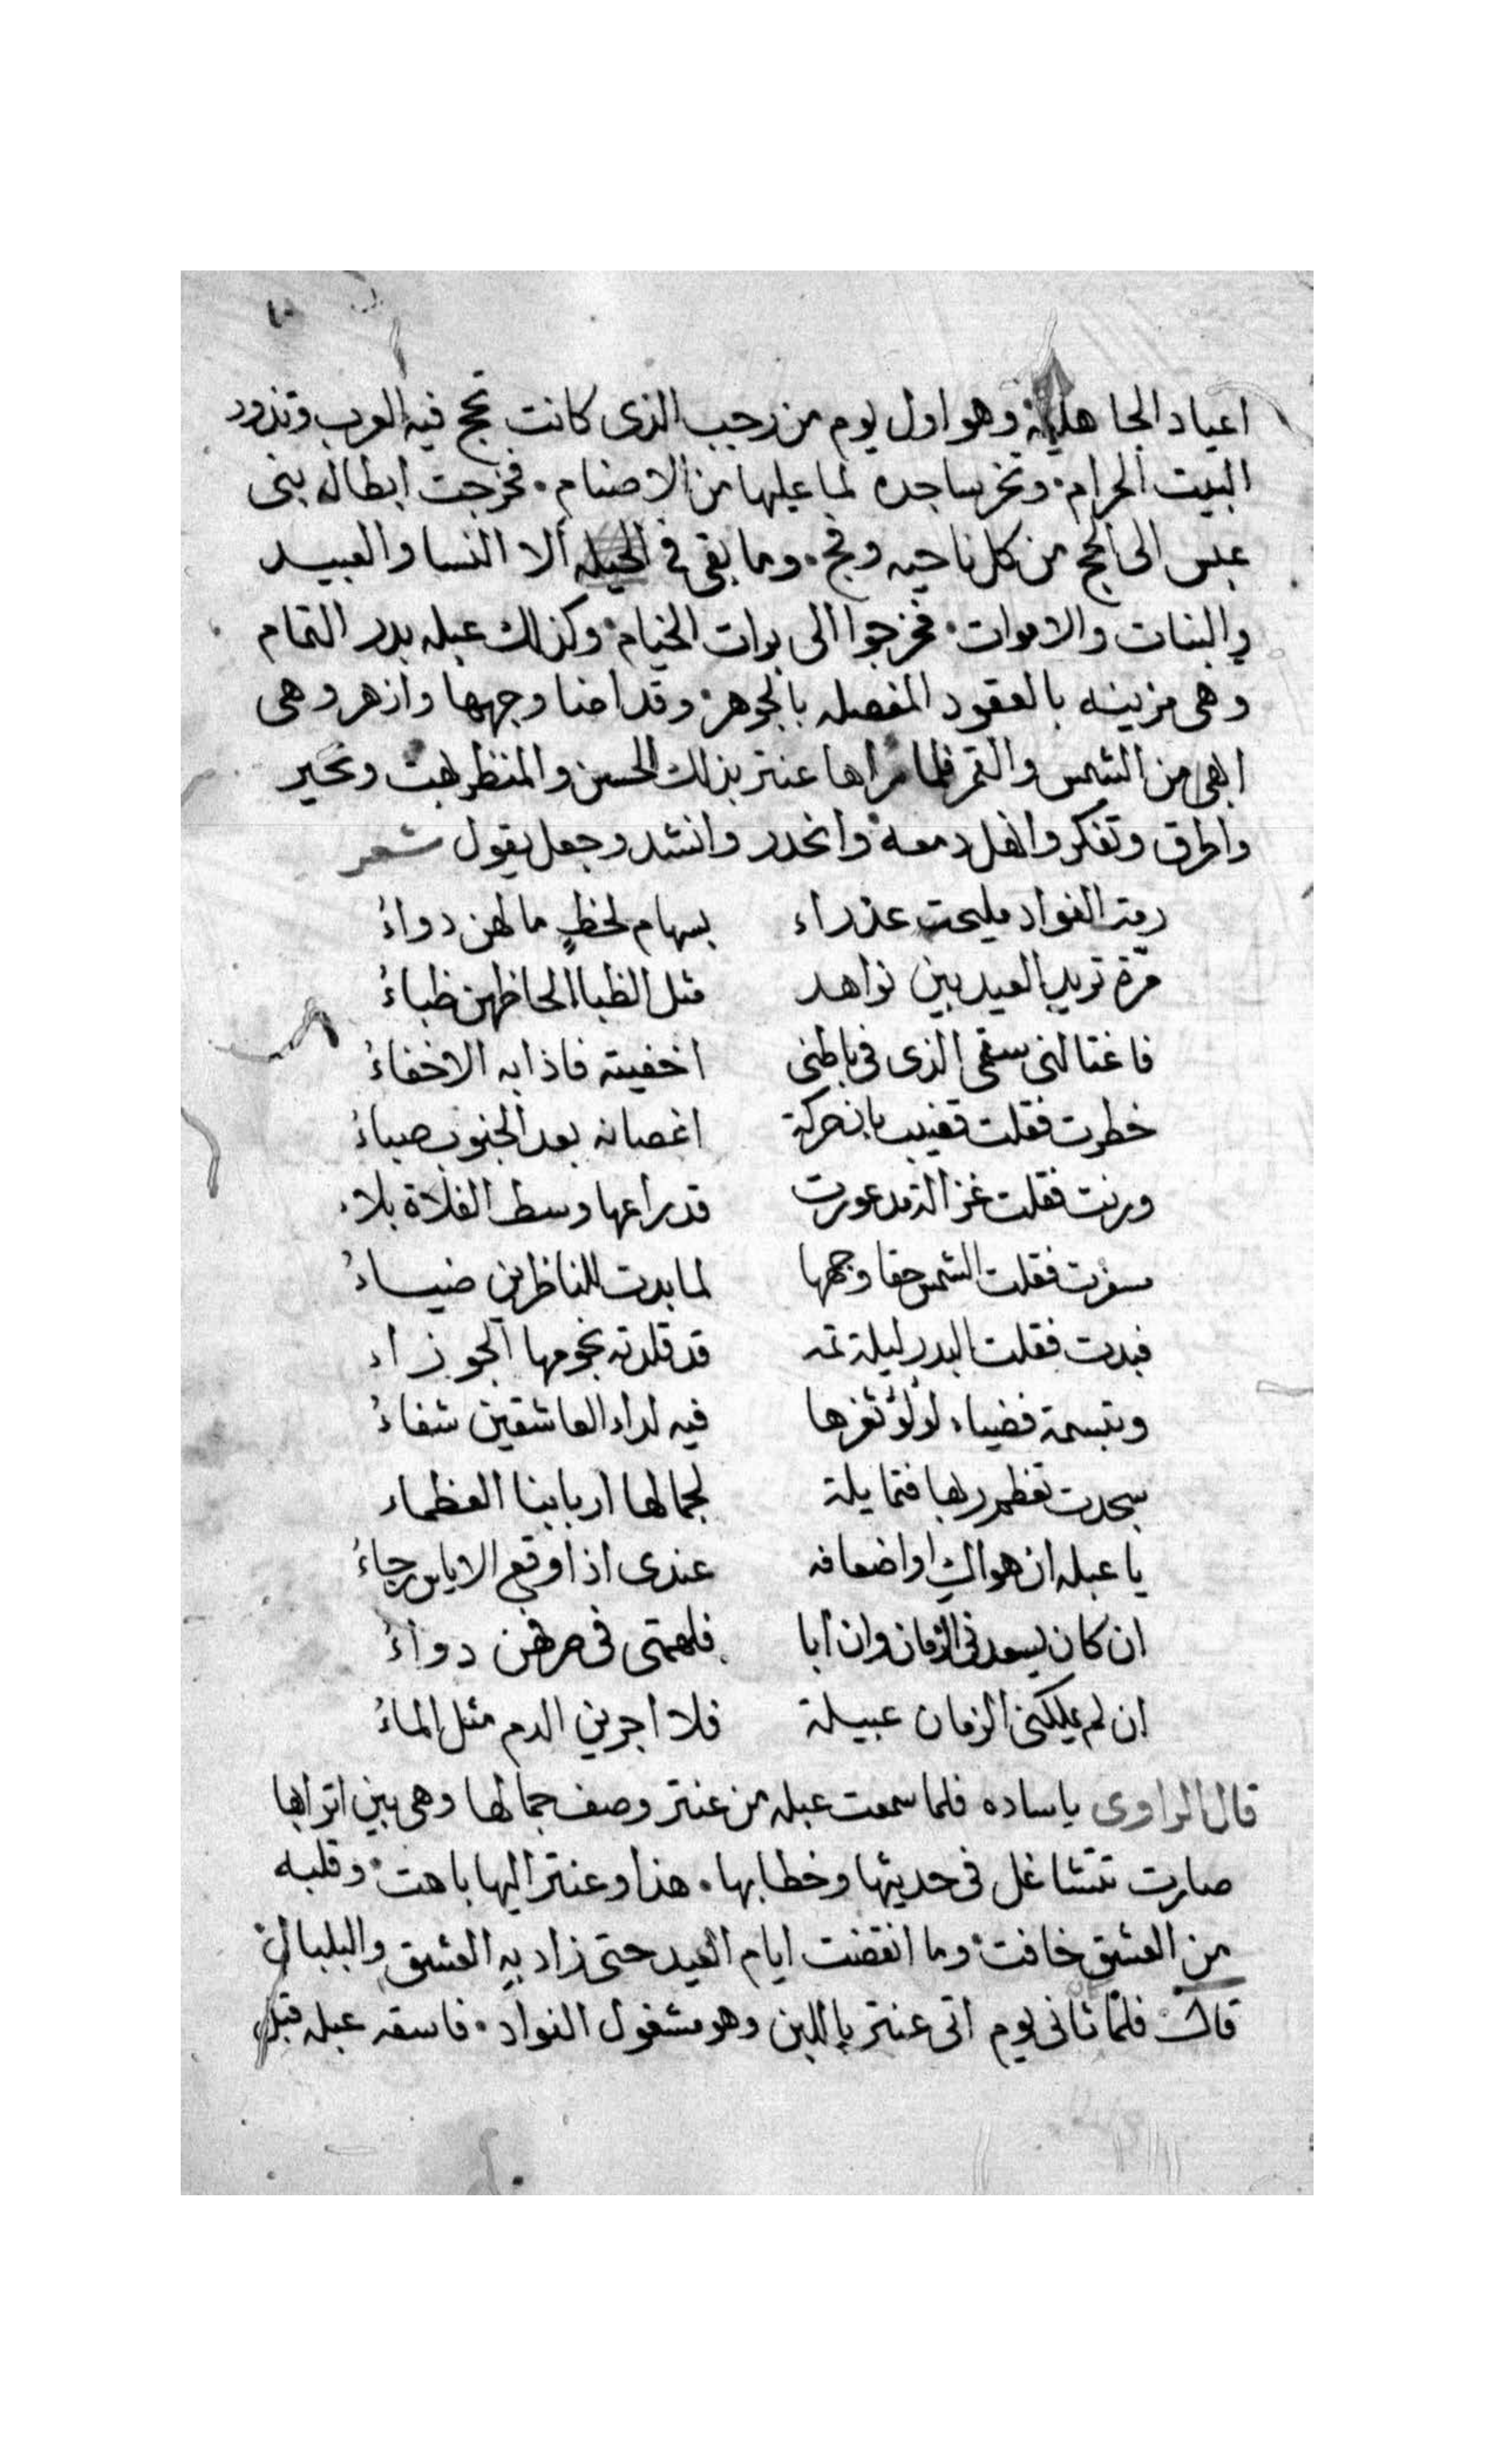 اعياد الجاهلية وهو اول يوم من رجب الذى كانت تحج فيه العرب وتزور
البيت الحرام وتخر ساجده لما عليها من الاصنام فخرجت ابطال بنى
عبس الى الحج من كل ناحيه وفج وما بقى فى الحيله الا النسا والعبيد
والبنات والاموات فخرجوا الى برات الخيام وكذلك عبله بدر التمام
وهى مزينه بالعقود المفصله بالجوهر وقد اضا وجهها وازهر وهى
ابهى من الشمس والقمر فلما راها عنتر بذلك الحسن والمنظر بهت وتحير
واطرق وتفكر وانهل دمعه وانحدر وانشد وجعل يقول شعر
رمت الفواد مليحت عذراء بسهام لحظٍ ما لهن دواءُ
مرة تريد العيد بين نواهد مثل الظبا الحاظهن ظباءُ
فاغتالنى سقمى الذى فى باطنى اخفيته فاذابه الاخفاءُ
خطرت فقلت قضيب بان حركة اغصانه بعد الجنوب صباءُ
ورنت فقلت غزالة مدعورت قد راعها وسط الفلاة بلاء
سفرت فقلت الشمس حقا وجهها لما بدت للناظرين ضياءُ
فبدت فقلت البدر ليلة تمه قد قلدته نجومها الجوزاء
وتبسمة فضياء لولؤ ثغرها فيه لداء العاشقين شفاءُ
سجدت تعظم ربها فتمايلة لجمالها اربابنا العظماء
يا عبله ان هواك او اضعافه عندى اذا وقع الاياس رجاءُ
ان كان يسعدنى الزمان وان ابا فلهمتى فى صرفهن دواءُ
ان لم يملكنى الزمان عبيلة فلا اجرين الدم مثل الماءُ
قال الراوى ياساده فلما سمعت عبله من عنتر وصف جمالها وهى بين اترابها
صارت تتشاغل فى حديثها وخطابها هذا وعنتر اليها باهت وقلبه
من العشق خافت وما انقضت ايام العيد حتى زاد به العشق والبلبال
قال فلما ثانى يوم اتى عنتر باللبن وهو مشغول الفواد فاسقه عبله قبل